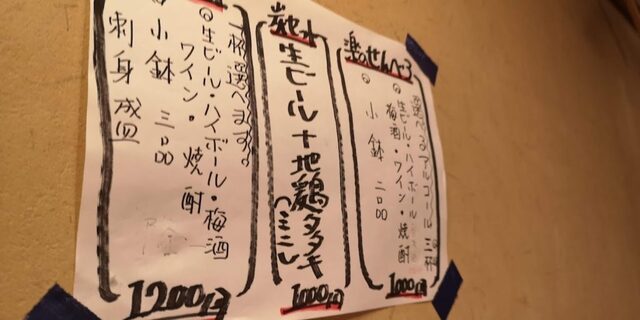 楽のせんべろ
選べるアルコール 三杯
生ビール・ハイボール
梅酒・ワイン・焼酎
小鉢 二品
1000円
生ビール+地鶏タタキ
(ミニ)
1000円
杯選べます。
生ビール・ハイボール・梅酒
ワイン・焼酎
小鉢 三品
刺身盛
1200円